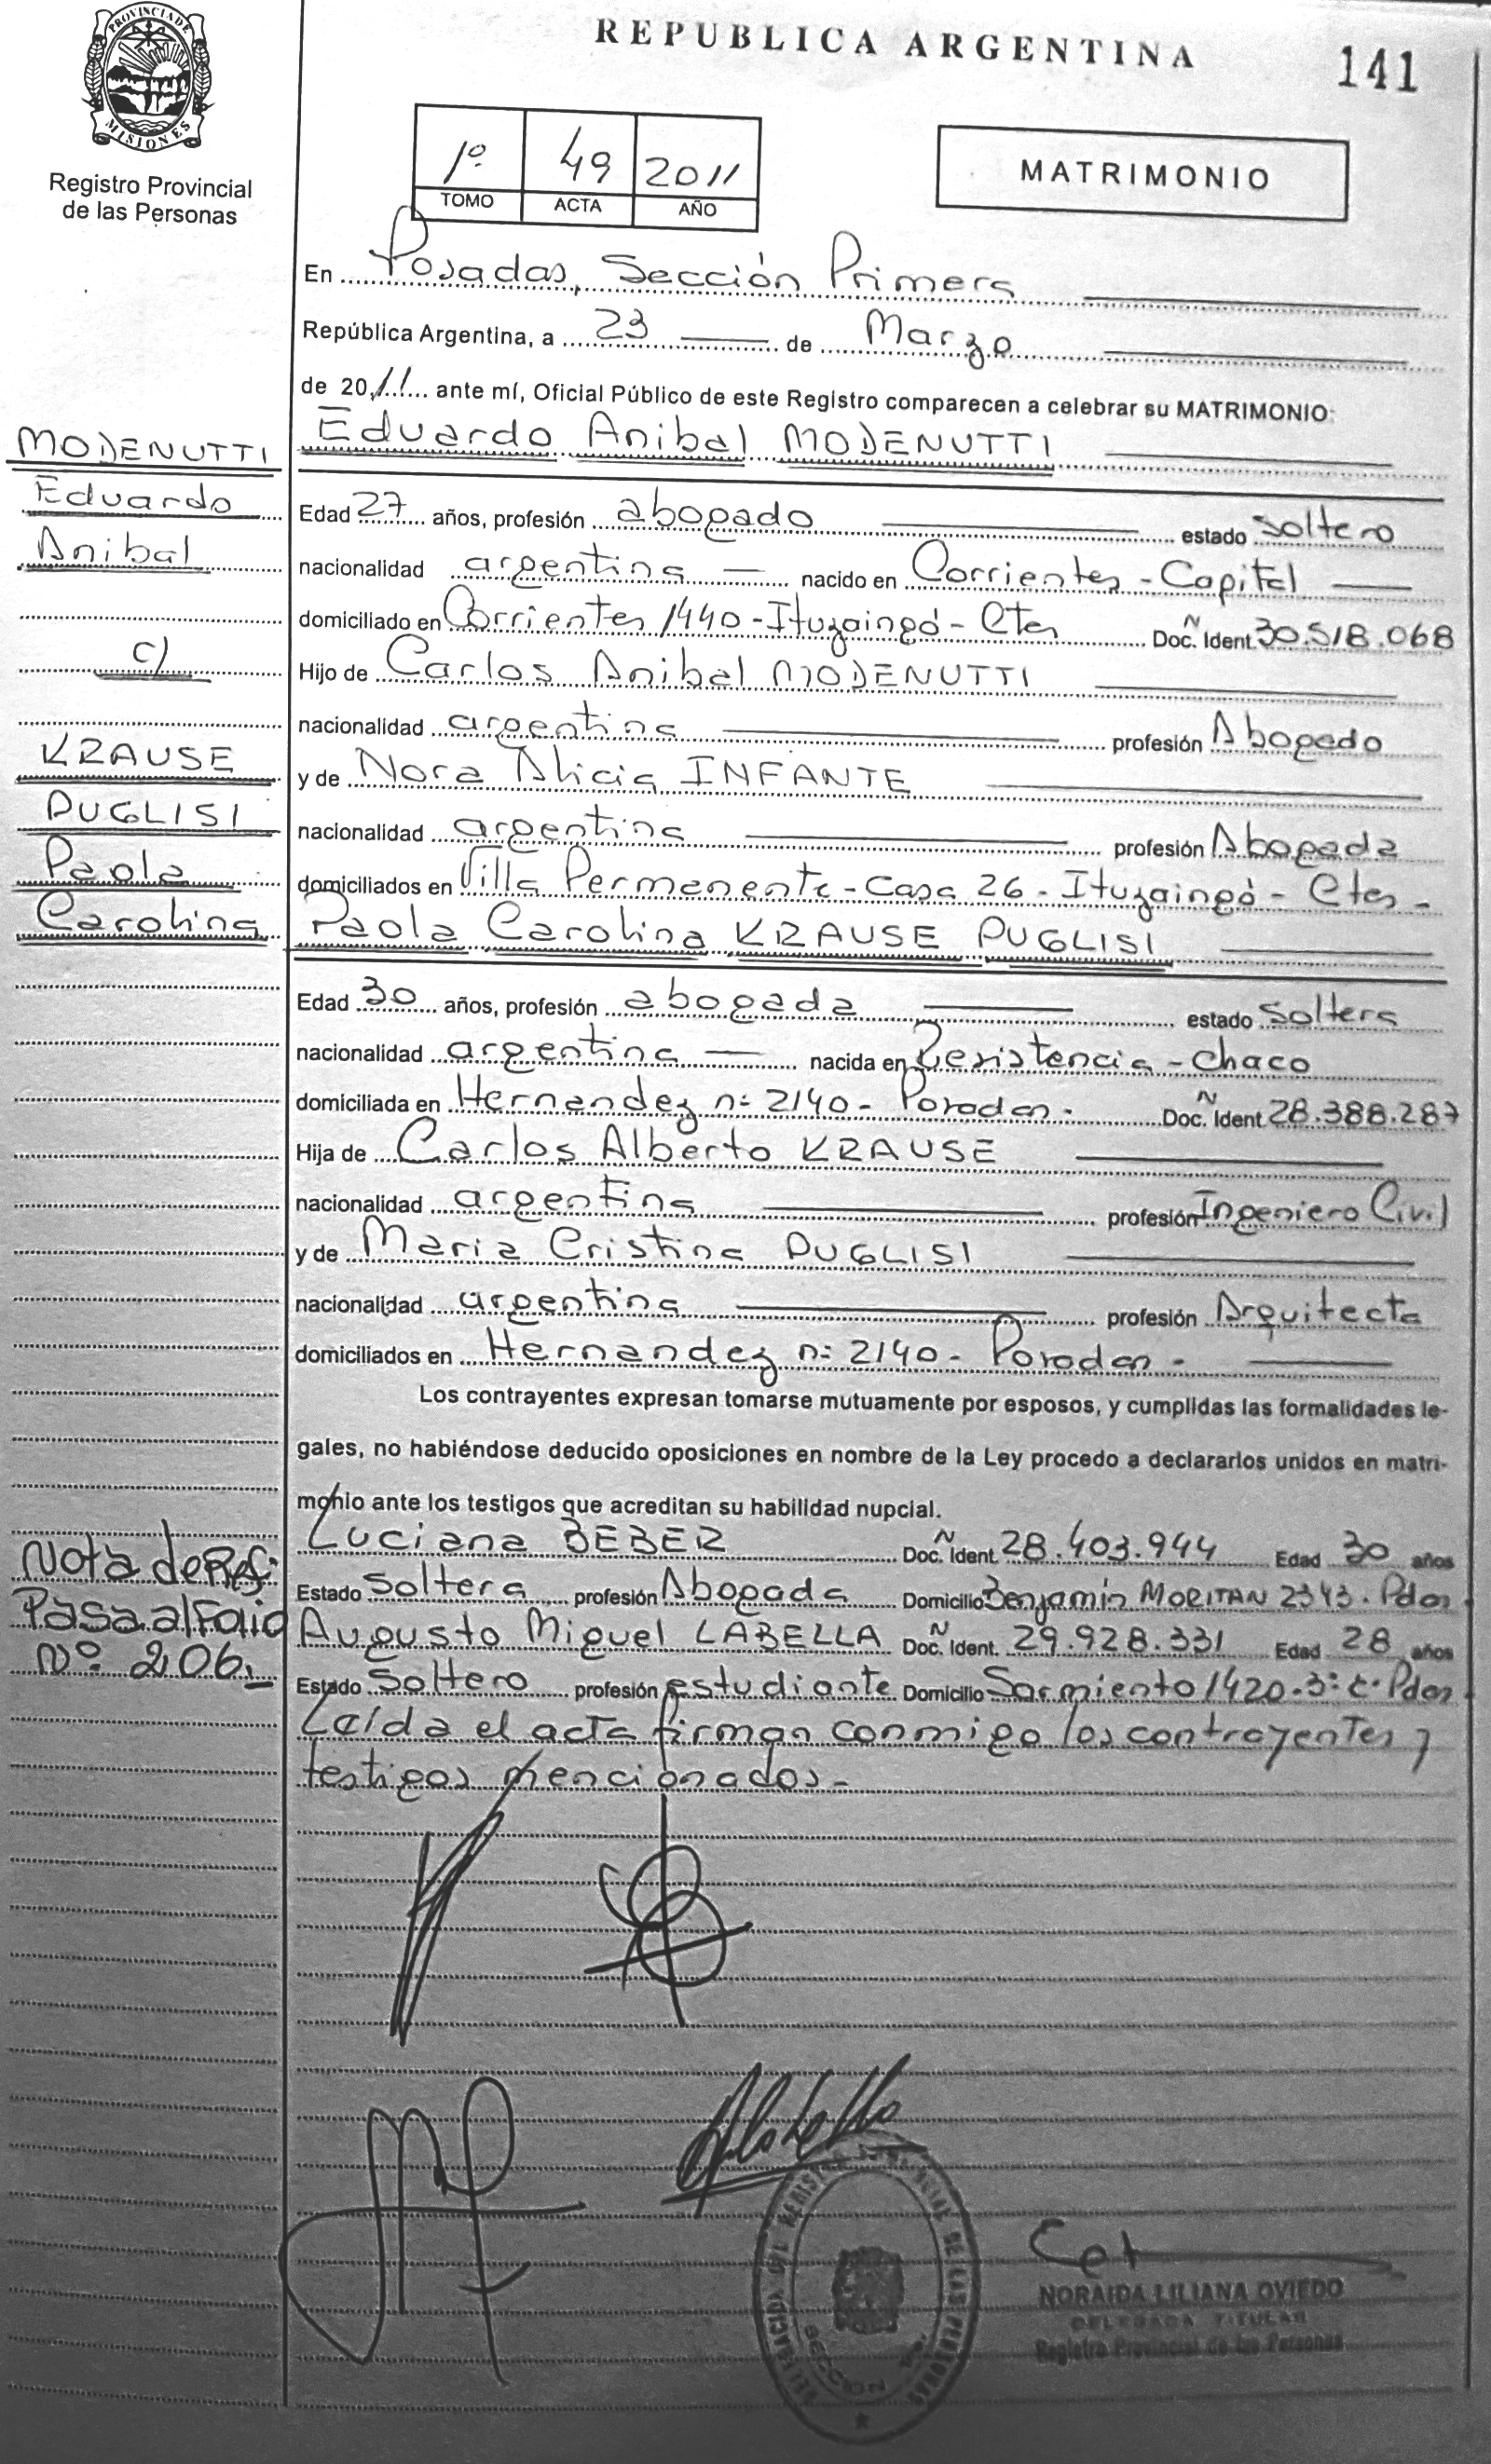 REPUBLICA ARGENTINA
141
PROVINCIA DE
MISIONES
Registro Provincial
de las Personas
1º 49 2011
TOMO ACTA AÑO
MATRIMONIO
En Posadas, Sección Primera
República Argentina, a 23 de Marzo
de 2011 ante mí, Oficial Público de este Registro comparecen a celebrar su MATRIMONIO:
Eduardo Anibal MODENUTTI
MODENUTTI
Eduardo
Anibal
c/
KRAUSE
PUGLISI
Paola
Carolina
Edad 27 años, profesión abogado estado soltero
nacionalidad argentina nacido en Corrientes - Capital
domiciliado en Corrientes 1440 - Ituzaingó - Ctes Doc. Ident. Ñ 30.518.068
Hijo de Carlos Anibal MODENUTTI
nacionalidad argentina profesión Abogado
y de Nora Alicia INFANTE
nacionalidad argentina profesión Abogada
domiciliados en Villa Permanente - Casa 26 - Ituzaingó - Ctes -
Paola Carolina KRAUSE PUGLISI
Edad 30 años, profesión abogada estado soltera
nacionalidad argentina nacida en Resistencia - Chaco
domiciliada en Hernandez n: 2140 - Posadas - Doc. Ident. Ñ 28.388.287
Hija de Carlos Alberto KRAUSE
nacionalidad argentina profesión Ingeniero Civil
y de Maria Cristina PUGLISI
nacionalidad argentina profesión Arquitecta
domiciliados en Hernandez n: 2140 - Posadas -
Los contrayentes expresan tomarse mutuamente por esposos, y cumplidas las formalidades le-
gales, no habiéndose deducido oposiciones en nombre de la Ley procedo a declararlos unidos en matri-
monio ante los testigos que acreditan su habilidad nupcial.
Luciana BEBER Doc. Ident. Ñ 28.403.944 Edad 30 años
Estado soltera profesión Abogada Domicilio Benjamín MORITAN 2343. Pdas.
Augusto Miguel LABELLA Doc. Ident. Ñ 29.928.331 Edad 28 años
Estado soltero profesión estudiante Domicilio Sarmiento 1420-3: C. Pdas.
Leída el acta firman conmigo los contrayentes y
testigos mencionados.-
Nota de Ref:
Pasa al Folio
Nº 206.
NORAIDA LILIANA OVIEDO
DELEGADA TITULAR
Registro Provincial de las Personas